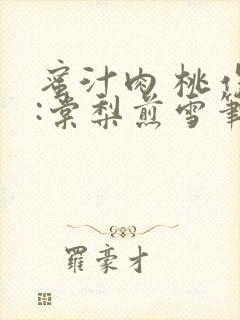 蜜汁肉桃作
:棠梨煎雪筆
羅豪才